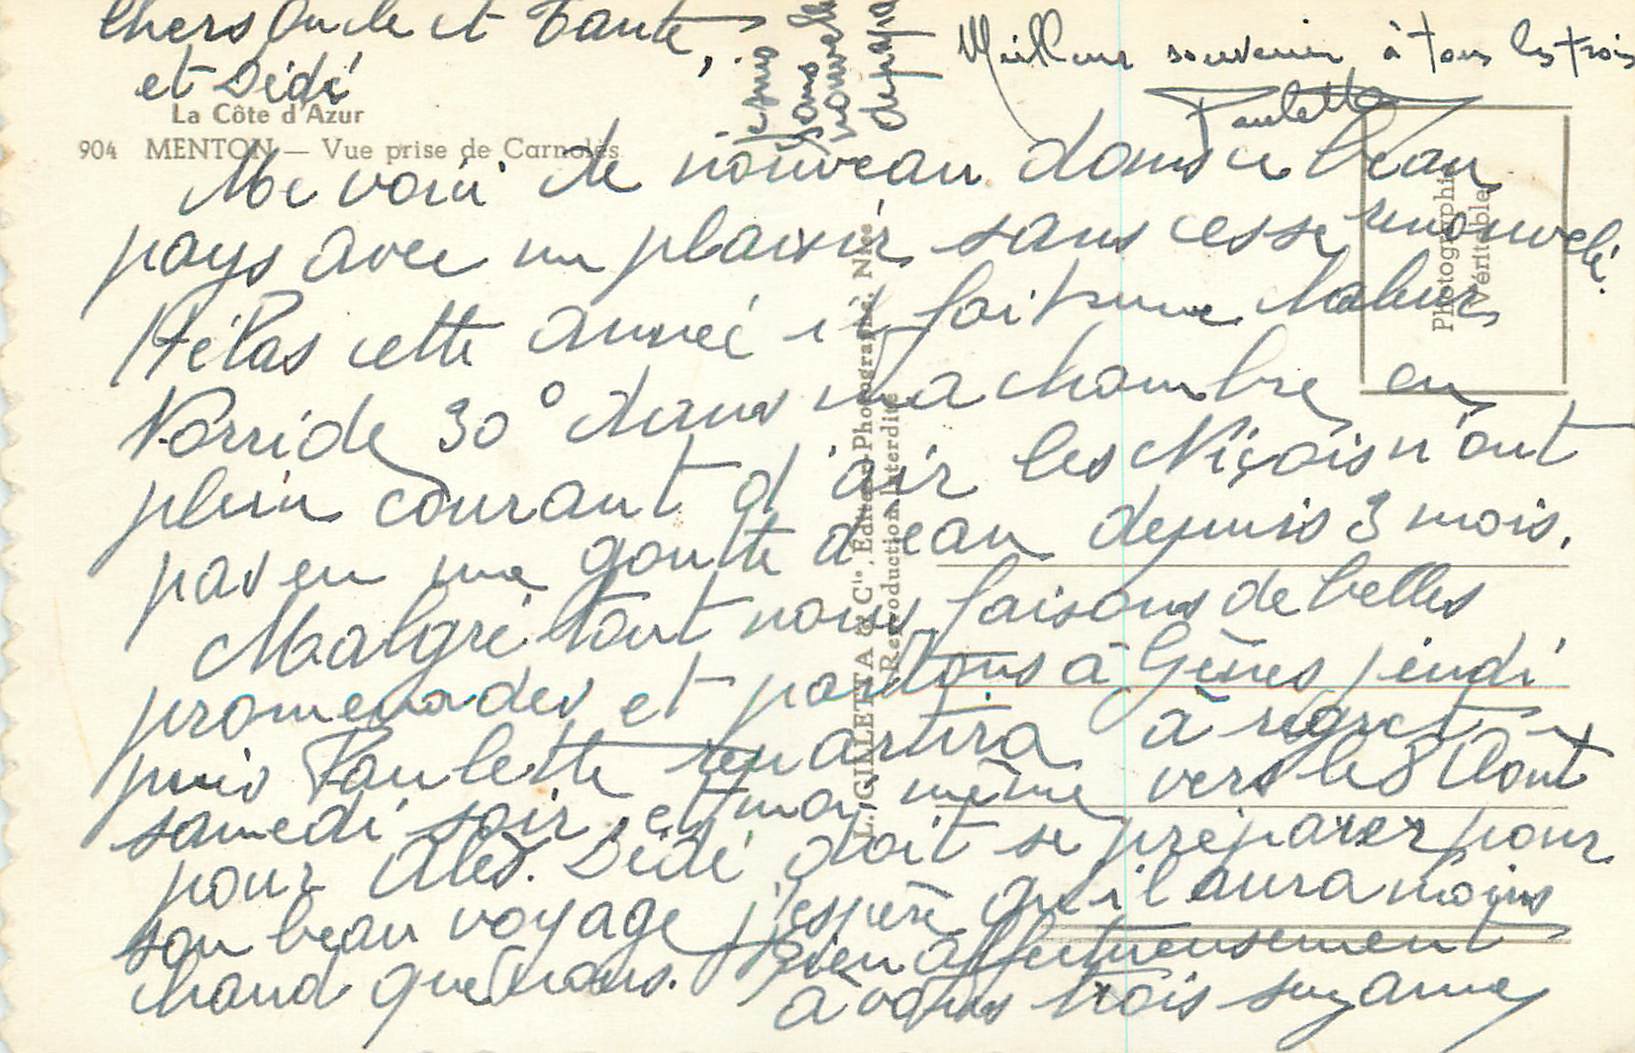 Chers Oncle et Tante,
et Dédé
La Côte d'Azur
904 MENTON — Vue prise de Carnolès
Me voici de nouveau dans ce beau
pays avec un plaisir sans cesse renouvelé.
Hélas cette année il fait une chaleur
torride 30° dans ma chambre en
plein courant d'air les Niçois n'ont
pas eu une goutte d'eau depuis 3 mois.
Malgré tout nous faisons de belles
promenades et partons à Gênes jeudi
puis Paulette repartira à regret
samedi soir, et moi même vers le 8 Aout
pour Alès. Dédé doit se préparer pour
son beau voyage j'espère qu'il aura moins
chaud que nous. Bien affectueusement
à vous trois Suzanne
je suis
sans
nouvelles
depuis
Meilleur souvenir à tous les trois
Paulette
Photographie
Véritable
L. GILLETTA & Cie, Éditeur-Photographe, Nice
Reproduction Interdite